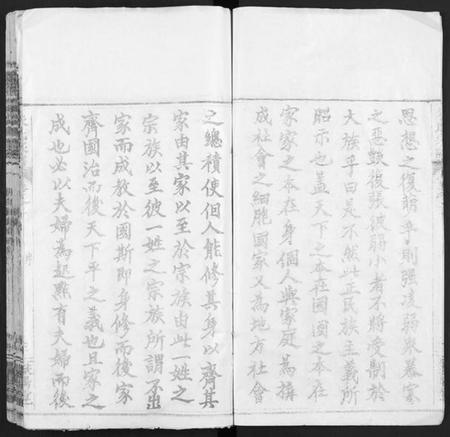 思想之復萌乎則强凌弱眾暴寡
之惡貌復張彼弱小者不將受制於
大族乎曰是不然此正民族主義所
昭示也蓋天下之本在國國之本在
家家之本在身個人與家庭為構
成社會之細胞國家又為地方社會
之總積使個人能修其身以齊其
家由其家以至於宗族由此一姓之
宗族以至彼一姓之宗族所謂不出
家而成教於國斯即身修而後家
齊國治而後天下平之義也且家之
成也必以夫婦為起點有夫婦而後